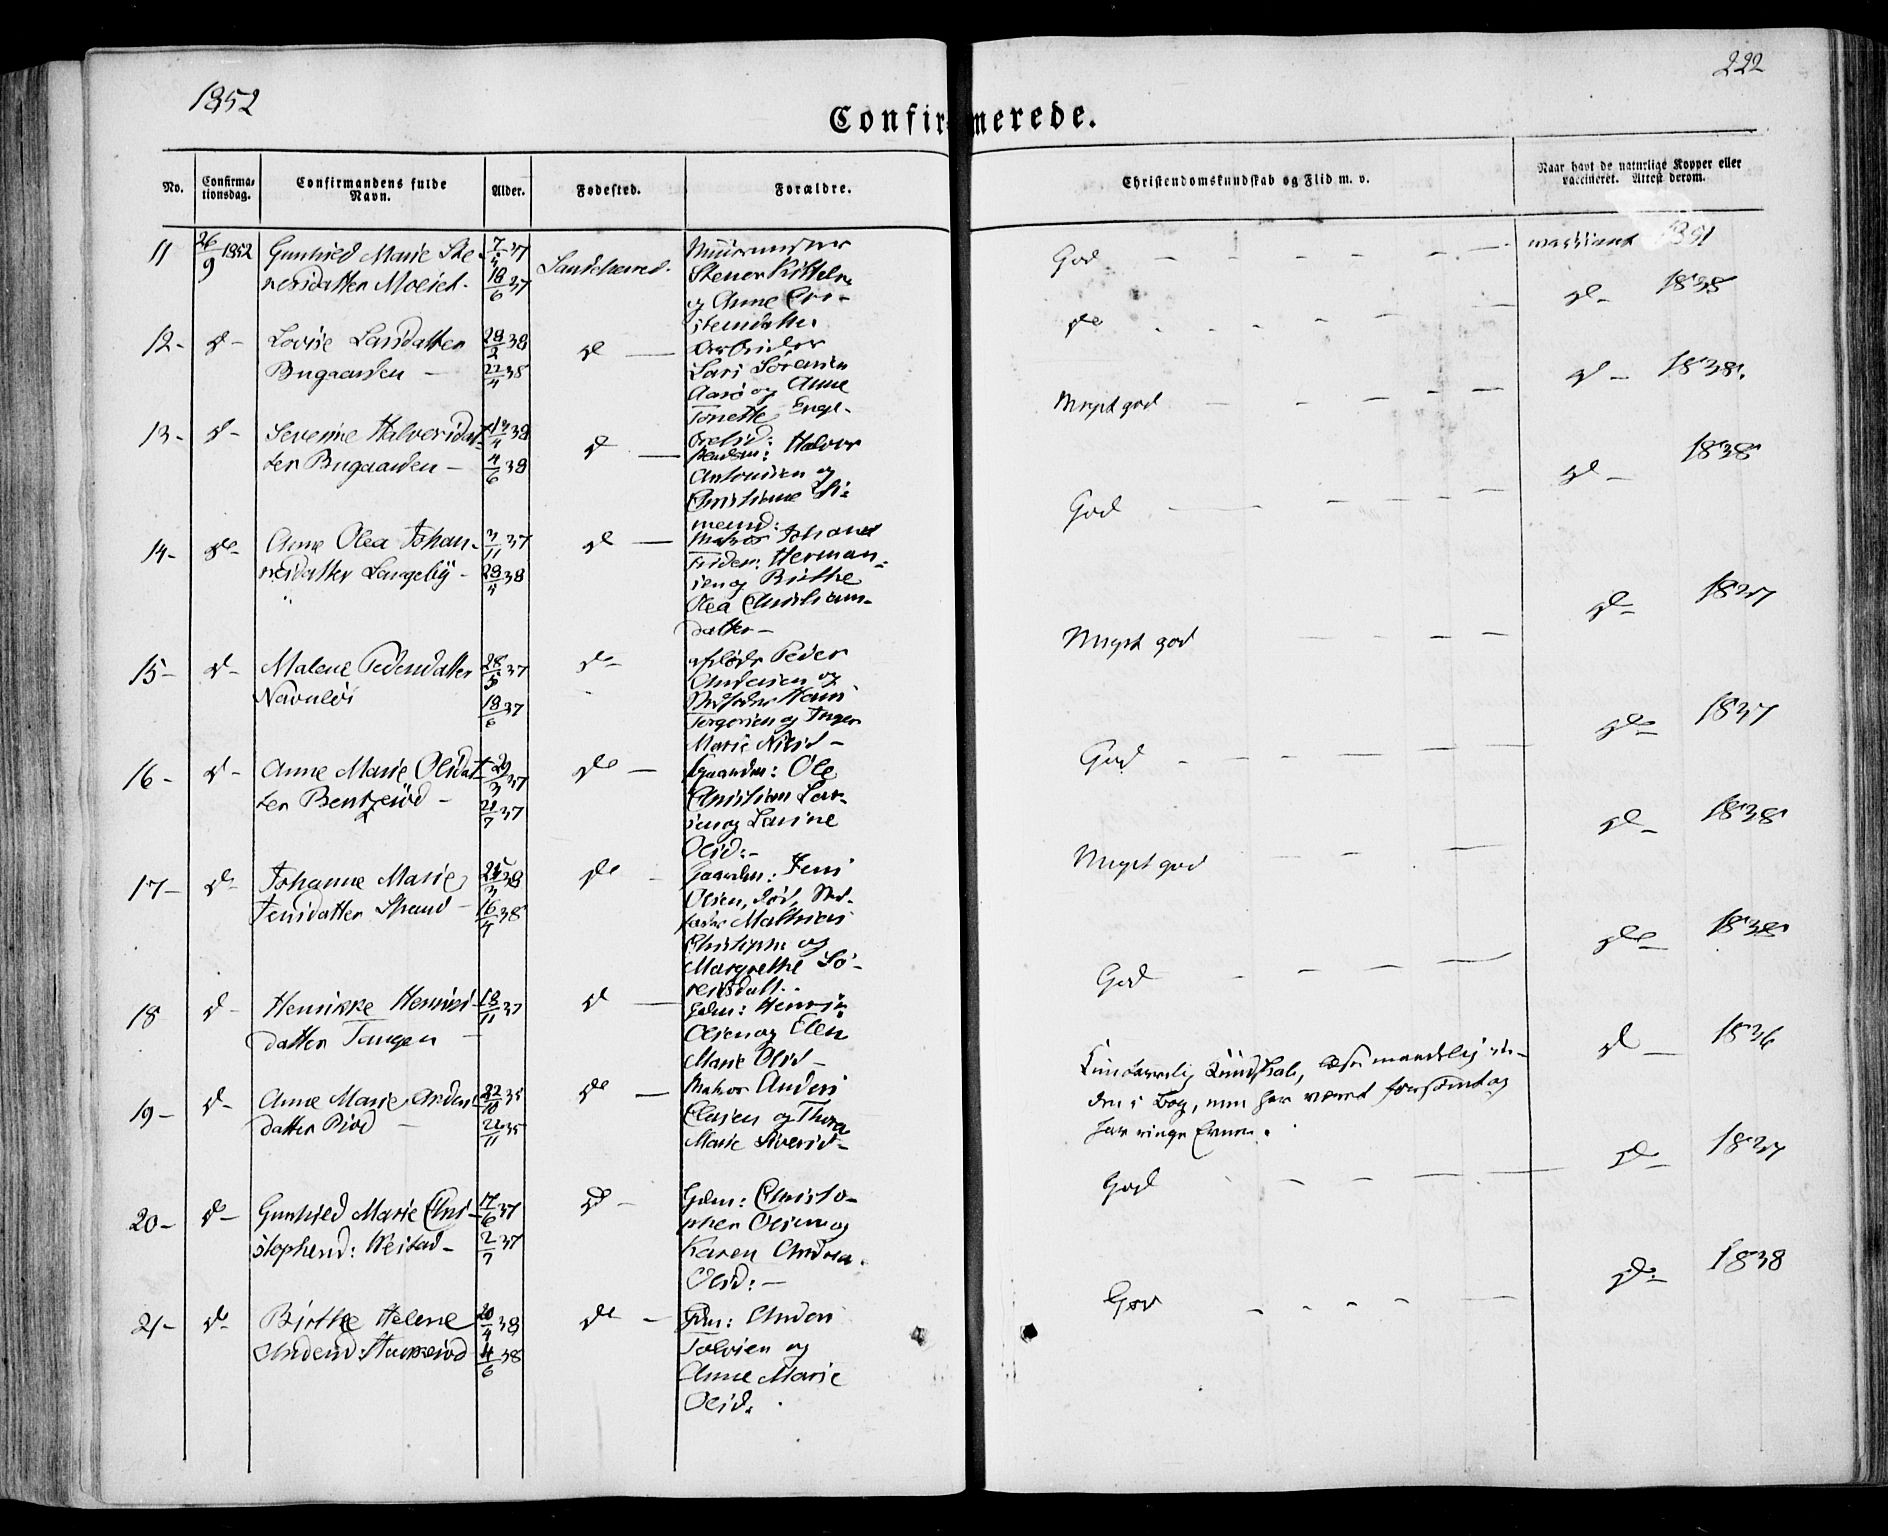 1852
222
Confirmerede.
No.
Confirma-
tionsdag.
Confirmandens fulde
Navn.
Alder.
Fødested.
Forældre.
Christendomskundskab og Flid m. v.
Naar havt de naturlige Kopper eller
vaccineret. Attest derom.
11
26/9 1852
Gunhild Marie Ste-
nersdatter
7/5 37
18/6 37
Sandeherred.
Muurmester
Stener Kittels.
og Anne Eri-
stensdatter
God
vaccineret 1851
12-
d-
Lovise Larsdatter
Bugaarden -
28/2 38
22/4 38
d
Arbeider
Lars Sørensen
Aarø og Anne
Tonette Engl-
bretsd:
do
d- 1838
13-
d-
Severine Halvorsdat-
ter Bugaarden -
13/4 38
4/6 38
d
Halvor
Antonsen og
Christiane Si-
mensd:
Meget god
d- 1838.
14-
do-
Anne Olea Johan-
nesdatter Langeby -
3/11 37
28/5 38
d
Matros Johannes
Herman-
sen og Birthe
Olea Christians-
datter -
God
d- 1838
15-
d-
Malene Pedersdatter
28/5 37
18/6 37
d-
afdøde Peder
Andersen og
Stedfader Hans
Torgersen og Inger
Marie Nilsd -
Meget god
d- 1837
16-
d-
Anne Marie Olsdat-
ter Bentzerød -
29/3 37
21/7 37
do
Gaardm: Ole
Christian Lar-
sen og Lovine
Olsd:-
God
do- 1837
17-
d-
Johanne Marie
Jensdatter Strand -
25/3 38
16/4 38
do
Gaardm: Jens
Olsen, død, Sted-
fader Mathias
Christoph: og
Margrethe Sø-
rensdatt.
Meget god
d- 1838
18
d-
Henrikke Henriks-
datter Tangen -
18/11 37
d
Gdm: Henrik
Olsen og Ellen
Marie Olsd -
God
do- 1838
19-
d-
Anne Marie Anders-
datter
22/10 35
22/11 35
do
Matros Anders
Clasen og Thora
Marie Siversd-
Kundskab, læser maadelig in-
den i Bog, men har været forsømt og
har ringe Evner.
d 1836
20-
d-
Gunhild Marie Chri-
stophersd: Vestad-
17/6 37
2/7 37
d-
Gdm: Christo-
pher Olsen og
Karen Andrea
Olsd:-
God
d- 1837
21-
d-
Birthe Helene
Andersd:
20/4 38
4/6 38
do
Gdm: Anders
Tolvsen og
Anne Marie
Olsd.
God
d- 1838